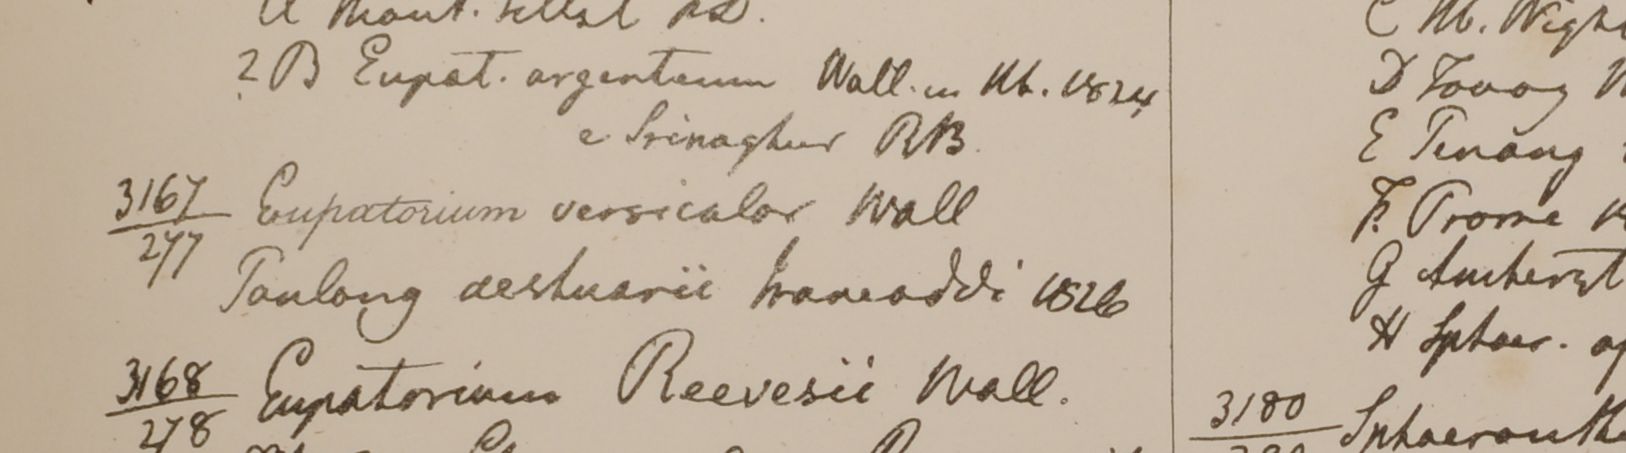 2 B Eupat. argenteum Wall. in Hb. 1824
e Srinaghur RB.
3167
277
Eupatorium versicolor Wall
Toulong aestuarii Irawaddi 1826
3168
278
Eupatorium Reevesii Wall.
D Tavoy
E Penang
F. Prome
G Amherst
H Sphaer.
3180